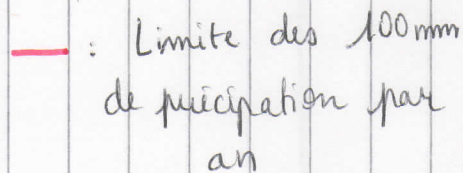 : Limite des 100mm
de précipation par
an